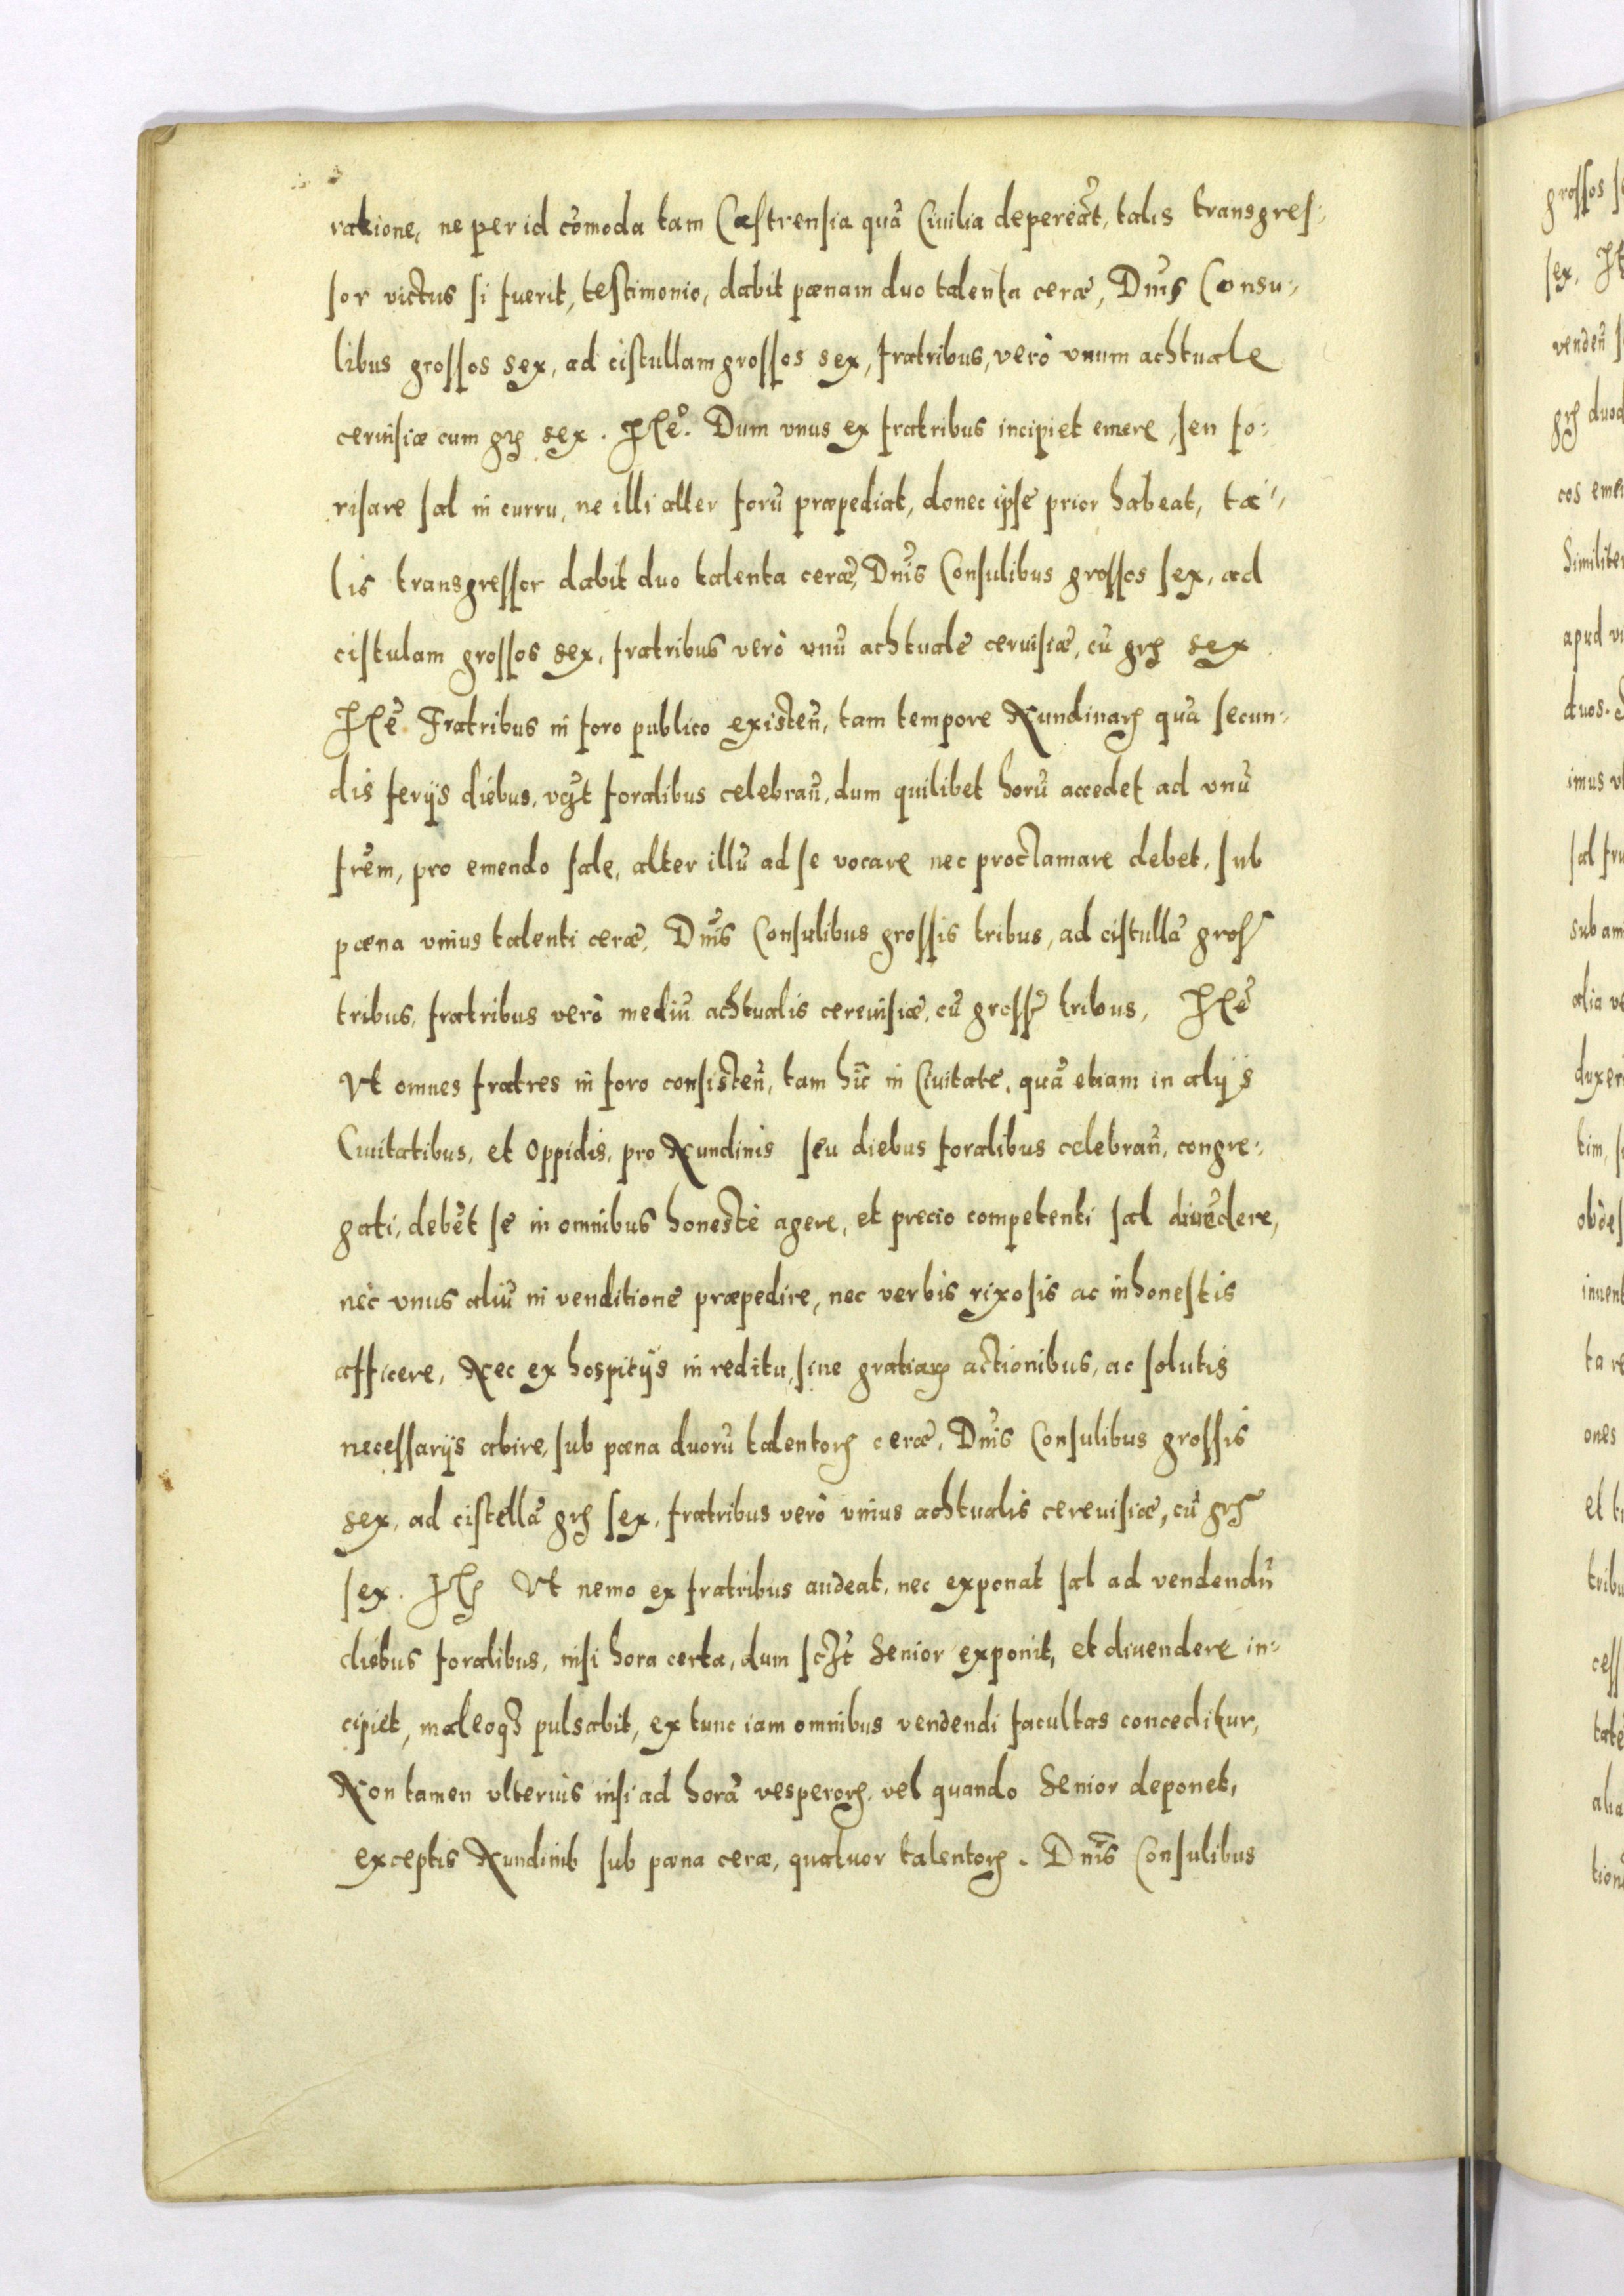 ratione, ne per id cōmoda tam Castrensia quā Ciuilia depereāt, talis transgres-
sor victus si fuerit, testimonio, dabit pœnam duo talenta ceræ, Dn̄is Consu-
libus grossos sex, ad cistullam grossos sex, fratribus, verò vnum achtuale
ceruisiæ cum gr̄ sex. Itē. Dum vnus ex fratribus incipiet emere, seu fo-
risare sal in curru, ne illi alter forū præpediat, donec ipse prior habeat, ta-
lis transgressor dabit duo talenta ceræ, Dn̄is Consulibus grossos sex, ad
cistulam grossos sex, fratribus verò vnū achtuale ceruisiæ, cū gr̄ sex
Itē Fratribus in foro publico existeñ, tam tempore Nundinarꝝ quā secun-
dis ferijs diebus, vꝫt foralibus celebrañ, dum quilibet horū accedet ad vnū
fr̄em, pro emendo sale, alter illū ad se vocare nec proclamare debet, sub
pœna vnius talenti ceræ, Dn̄is Consulibus grossis tribus, ad cistullā gross
tribus, fratribus verò mediū achtualis cereuisiæ, cū gross tribus, Itē
Vt omnes fratres in foro consisteñ, tam hīc in Ciuitate, quā etiam in alijs
Ciuitatibus, et Oppidis, pro Nundinis seu diebus foralibus celebrañ, congre-
gati, debēt se in omnibus honestè agere, et precio competenti sal diuēdere,
nec vnus aliū in venditione præpedire, nec verbis rixosis ac inhonestis
afficere, Nec ex hospitijs in reditu, sine gratiarꝝ actionibus, ac solutis
necessarijs abire, sub pœna duorū talentorꝝ ceræ, Dn̄is Consulibus grossis
sex, ad cistellā gr̄ sex, fratribus verò vnius achtualis cereuisiæ, cū gr̄
sex. Itꝝ Vt nemo ex fratribus audeat, nec exponat sal ad vendendū
diebus foralibus, nisi hora certa, dum scꝫt Senior exponit, et diuendere in-
cipiet, maleoqꝫ pulsabit, ex tunc iam omnibus vendendi facultas conceditur,
Non tamen vlterius nisi ad horā vesperorꝝ, vel quando Senior deponet,
exceptis Nundinib sub pœna ceræ, quatuor talentorꝝ. Dn̄is Consulibus